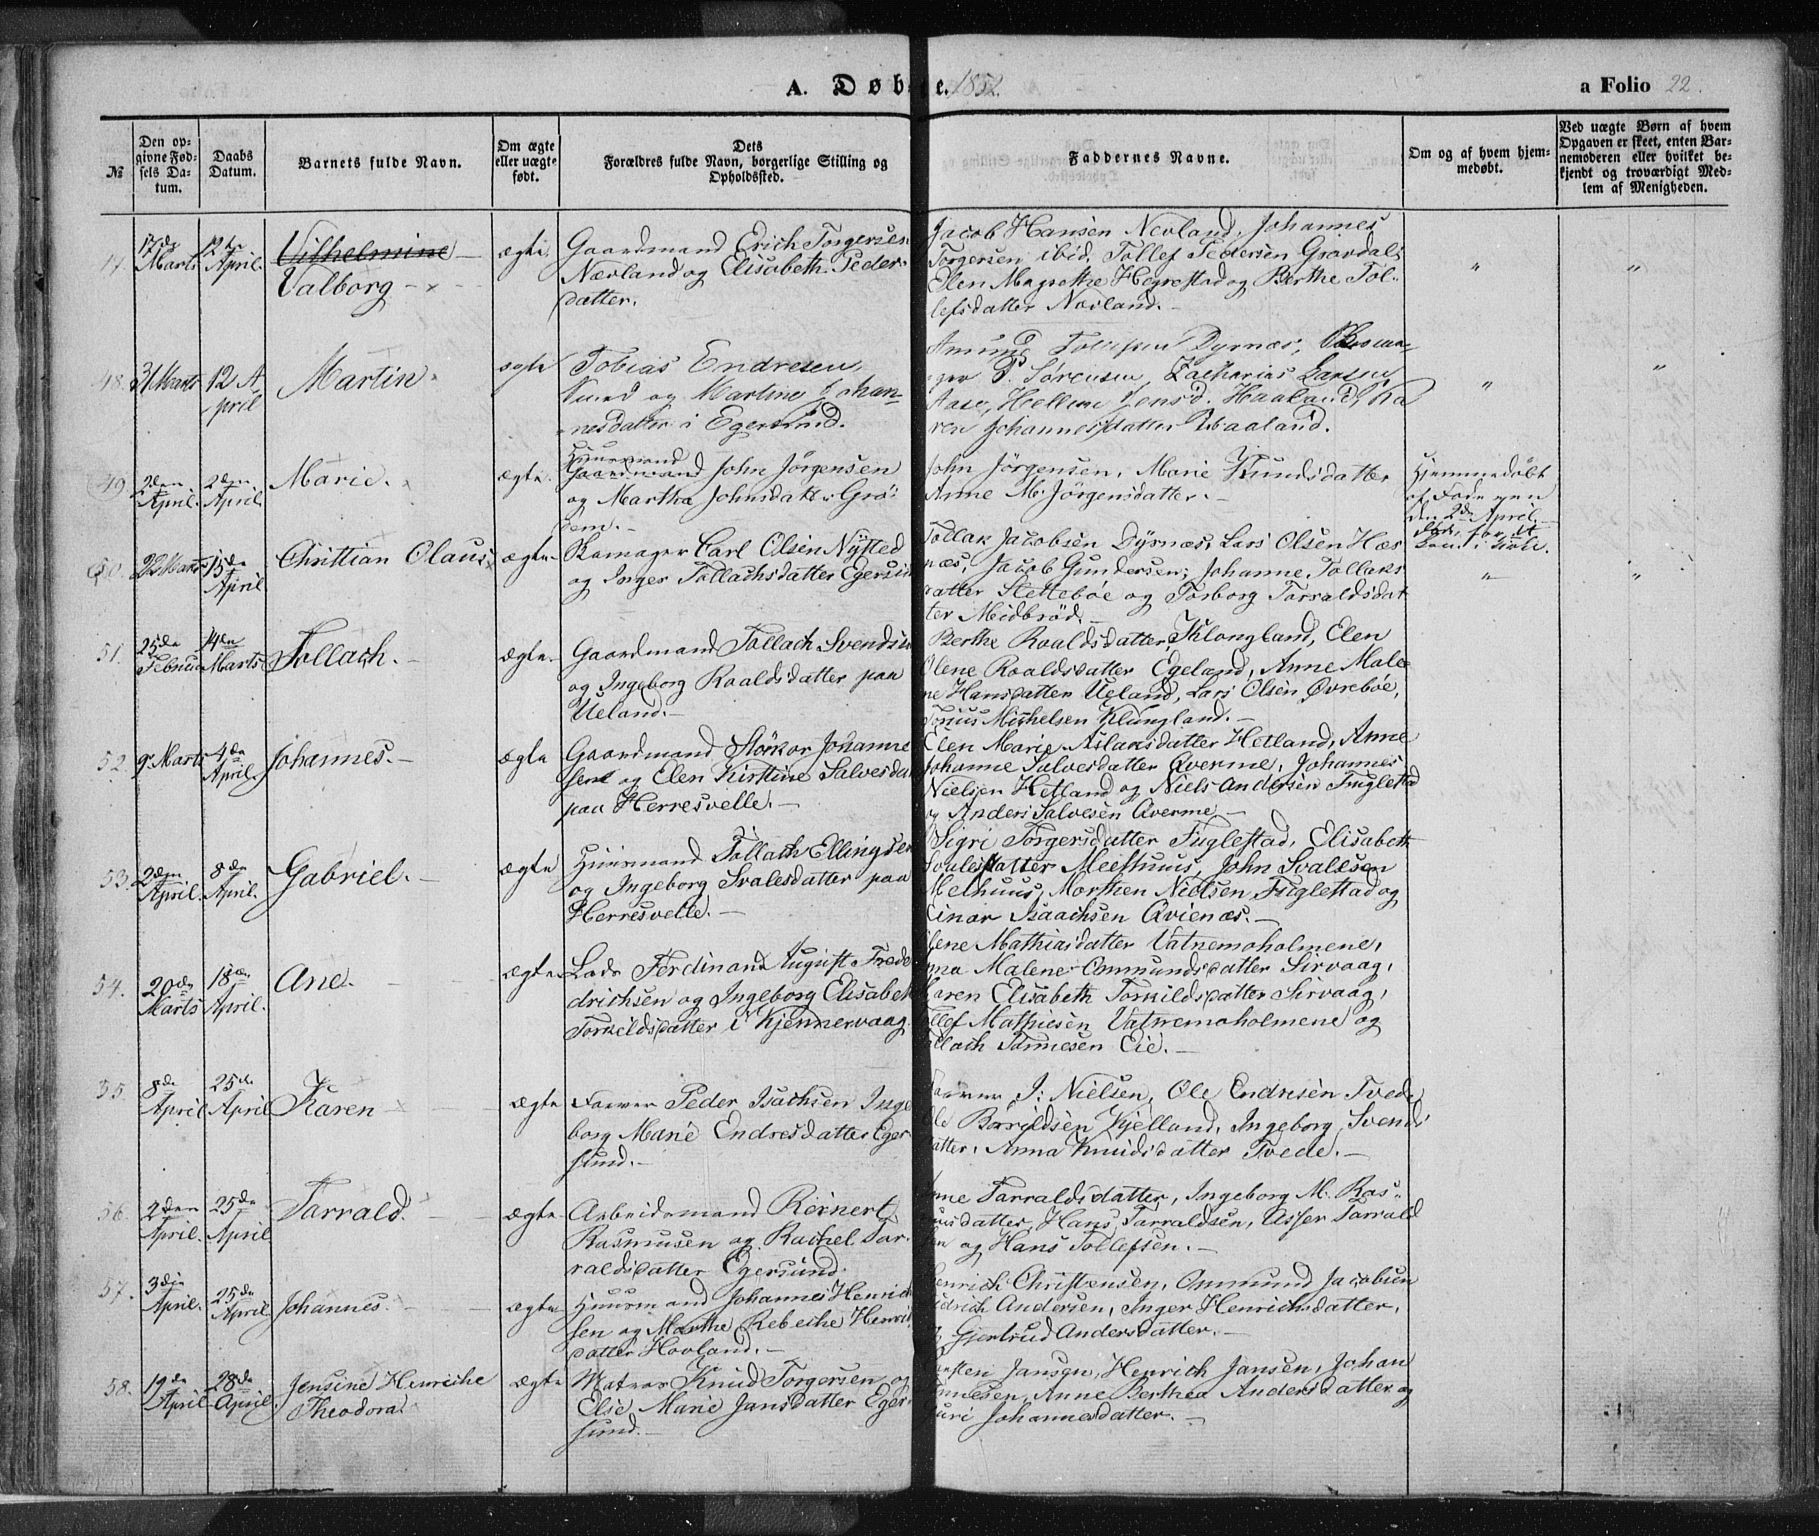 A. Døbte. 1852.
a Folio 22.
№
Den opgivne Fødsels Datum.
Daabs Datum.
Barnets fulde Navn.
Om ægte eller uægte født.
Dets Forældres fulde Navn, borgerlige Stilling og Opholdssted.
Faddernes Navne.
Om og af hvem hjemmedøbt.
Ved uægte Børn af hvem Opgaven er skeet, enten Barnemoderen eller hvilket bekjendt og troværdigt Medlem af Menigheden.
17de Marts
12te April.
Vilhelmine
Valborg
ægte.
Gaardmand Erich Torgersen
Nævland og Elisabeth Peders-
datter.
Jacob Hansen Nevland, Johannes
Torgersen ibid, Tollef Pedersen Gravdal,
Elen Magrethe Hegrestad og Berthe Tol-
lefsdatter Nævland.
48.
31 Marts
12 April
Martin
ægte
Tobias Endresen,
og Martine Johan-
nesdatter i Egersund.
Amund Dyrnæs,
P. Sørensen, Zacharias Larsen,
Aase, Hellene Jensd. Haaland, Ka
ren Johannesdatter Haaland.
49
2den April.
2den April.
Marie.
ægte.
Huusmand
Gaardmand John Jörgensen
og Martha Johnsdatt. Grö-
dem.
John Jörgensen, Marie Knudsdatter
Anne M. Jörgensdatter.
Hjemmedøbt
af Faderen
den 2de April.
50.
22 Marts
15de April
Christian Olaus
ægte
Skomager Carl Olsen Nysted
og Inger Tollachsdatter Egersund
Tollak Jacobsen Dyrnæs, Lars Olsen Hæs
næs, Jacob Gundersen, Johanne Tollaks
datter Slettebøe og Torborg Tarraldsdat
ter Midbrød.
51.
25de Februar
14den Marts
Tollach.
ægte
Gaardmand Tollach Svendsen
og Ingeborg Roaldsdatter paa
Ueland.
Berthe Roaldsdatter Klongland, Elen
Olene Roaldsdatter Egeland, Anne Male
ne Hansdatter Ueland, Lars Olsen Øvrebøe,
Tønnes Michelsen Klungland.
52.
9 Marts
4de April.
Johannes.
ægte
Gaardmand Störkor Johanne
sen og Elen Kirstine Salvesdat
paa Herresvelle.
Elen Marie Aslaksdatter Hetland, Anne
Johanne Salvesdatter Qverme, Johannes
Nielsen Hetland og Niels Andersen Fuglestad
og Anders Salvesen Qverme
53.
2den April.
8de April.
Gabriel.
ægte
Huusmand Tollach Ellingsen
og Ingeborg Svalesdatter paa
Herresvelle.
Sigri Torgersdatter Fuglestad, Elisabeth
Svalesdatter Meelhuus, John Svalesen
Melhuus, Morthen Nielsen Fuglestad og
Einar Isaachsen Qvienæs.
54.
20de Marts
18de April.
Ane.
ægte
Lods Ferdinand August Frede
drichsen og Ingeborg Elisabet
Torkildsdatter i Kjennervaag.
Elene Mathiasdatter Vatnemoholmene,
Anna Malene Ommundsdatter Sirvaag,
Karen Elisabeth Torkildsdatter Sirvaag,
Tollef Mathiesen Vatnemoholmene og
Tollach Tønnesen Eie.
55.
8de April
25de April
Karen
ægte
Farver Peder Isachsen Inge
borg Marie Endresdatter Eger
sund.
Farver I. Nielsen, Ole Endresen Tvede
Ole Bårildsen Kjelland, Ingeborg Svends
datter, Anna Knudsdatter Tvede.
56.
2den April.
25de April
Tarrald.
ægte
Arbeidsmand Reinert
Rasmusen og Rachel Tar-
raldsdatter Egersund.
Anne Tarraldsdatter, Ingeborg M. Ras-
musdatter, Hans Tarraldsen, Asser Tarrald
sen og Hans Tollefsen.
57.
3die April.
25de April
Johannes.
ægte
Huusmand Johannes Henrich
sen og Marthe Rebecche Henriks
datter Hovland.
Henrich Christensen, Ommund Jacobsen
Didrich Andersen, Inger Henrichsdatter,
og Gjertrud Andersdatter.
58.
19de April
28de April.
Jensine Henriche
Theodora
ægte
Matros Knud Torgersen og
Elie Marie Jansdatter Eger-
sund.
Karsten Jansen, Henrich Jansen, Johan
Tønnesen, Anne Berthea Andersdatter og
Guri Johannesdatter.